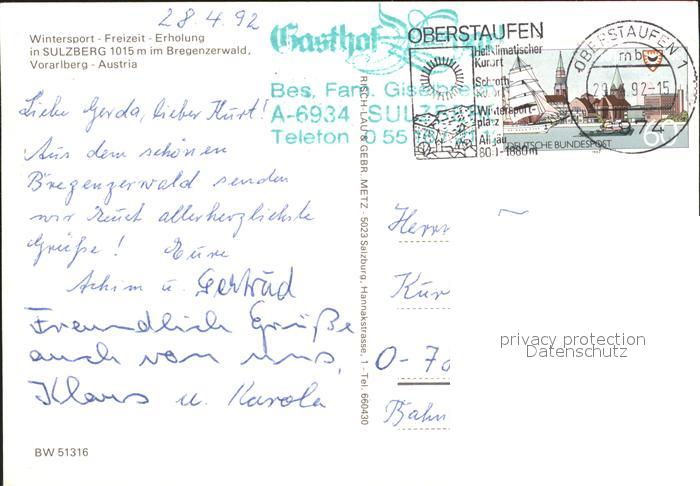 28.4.92
Wintersport - Freizeit - Erholung
in SULZBERG 1015 m im Bregenzerwald,
Vorarlberg - Austria
Gasthof
Bes. Fam.
A-6934 SULZBERG
Telefon 0 55
OBERSTAUFEN
Heilklimatischer
Kurort
Schroth-
kurort
Wintersport-
platz
Allgäu
800-1880m
OBERSTAUFEN 1
mb
92-15
8974
60
DEUTSCHE BUNDESPOST
Liebe Gerda, lieber Kurt!
Aus dem schönen
Bregenzerwald senden
wir Euch allerherzlichste
Grüße! Eure
Achim u. Gertrud
Freundlich Grüße
auch von uns,
Klaus u. Karola
RISCH-LAU & GEBR. METZ - 5023 Salzburg, Hannakstrasse, 1 - Tel. 660430
Herrn
Kur
O-70
Bahn
privacy protection
Datenschutz
BW 51316